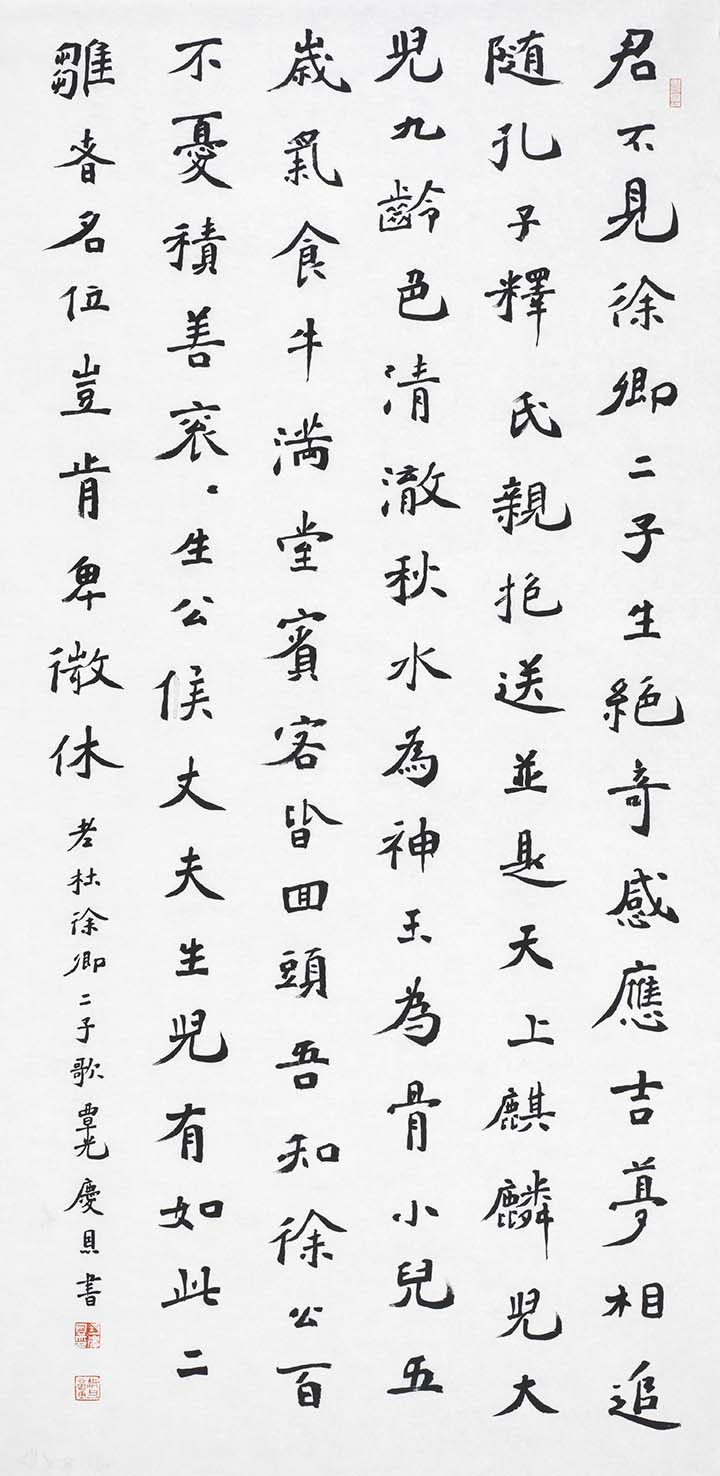 君不見徐卿二子生絕奇感應吉夢相追
隨孔子釋氏親抱送並是天上麒麟兒大
兒九齡色清澈秋水為神玉為骨小兒五
歲氣食牛滿堂賓客皆回頭吾知徐公百
不憂積善衮〻生公侯丈夫生兒有如此二
雛者名位豈肯卑微休
老杜徐卿二子歌 慶 書